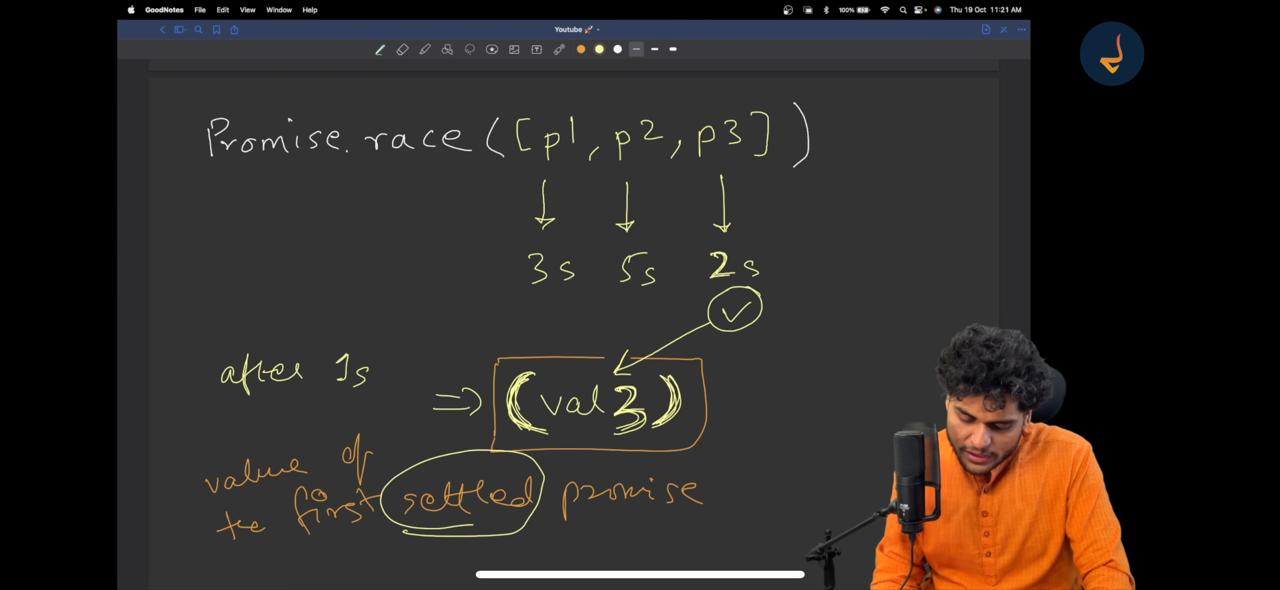 GoodNotes File Edit View Window Help 100% Thu 19 Oct 11:21 AM
Youtube 🚀
Promise.race([p1, p2, p3])
3s 5s 2s
after 1s
=> (val3)
value of
the first settled promise